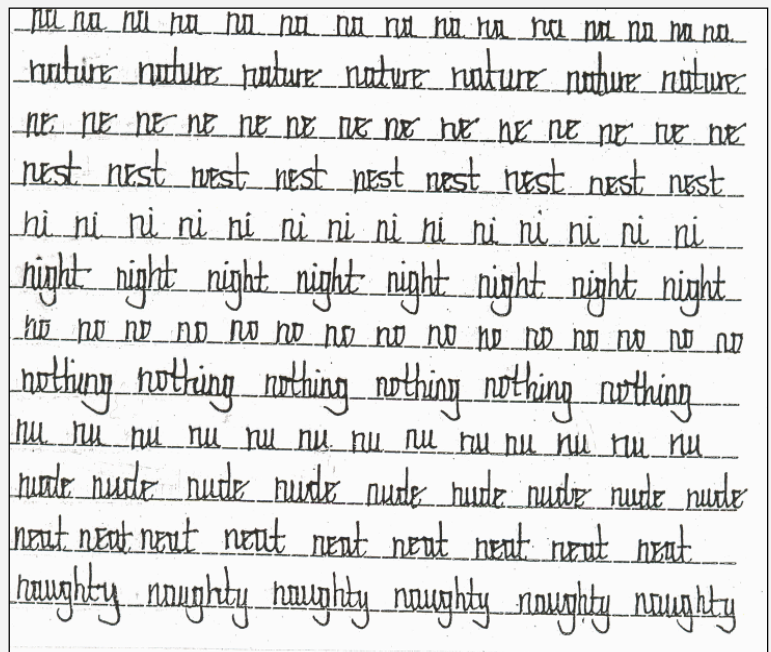 na na na na na na na na na na na na na na na
nature nature nature nature nature nature nature
ne ne ne ne ne ne ne ne ne ne ne ne ne ne
nest nest nest nest nest nest nest nest nest
ni ni ni ni ni ni ni ni ni ni ni ni ni ni
night night night night night night night night
no no no no no no no no no no no no no no no
nothing nothing nothing nothing nothing nothing
nu nu nu nu nu nu nu nu nu nu nu nu nu
nude nude nude nude nude nude nude nude nude
neat neat neat neat neat neat neat neat neat
naughty naughty naughty naughty naughty naughty